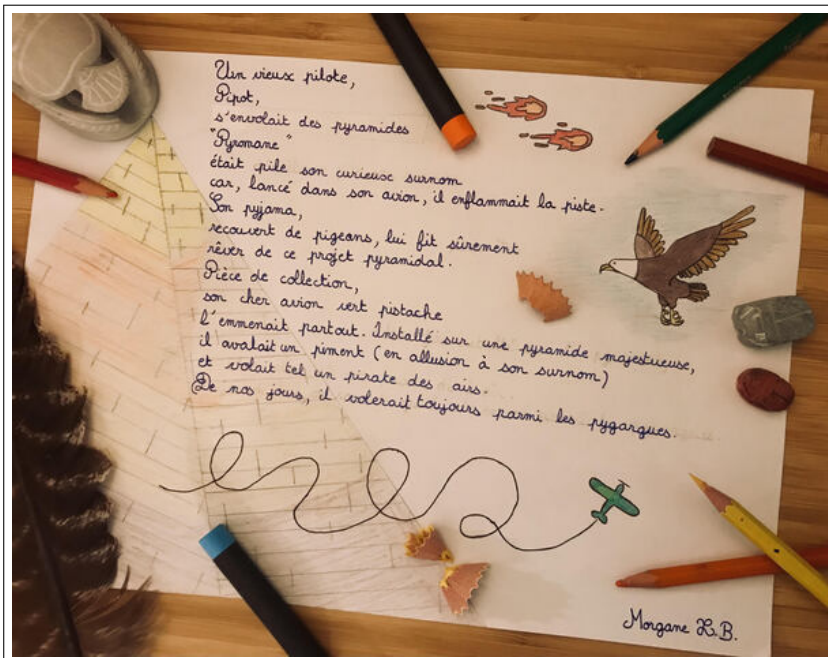 Un vieux pilote,
Pipot,
s'envolait des pyramides
"Pyromane"
était pile son curieux surnom
car, lancé dans son avion, il enflammait la piste.
Son pyjama,
recouvert de pigeons, lui fit sûrement
rêver de ce projet pyramidal.
Pièce de collection,
son cher avion vert pistache
l'emmenait partout. Installé sur une pyramide majestueuse,
il avalait un piment (en allusion à son surnom)
et volait tel un pirate des airs.
De nos jours, il volerait toujours parmi les pygargues.
Morgane L.B.